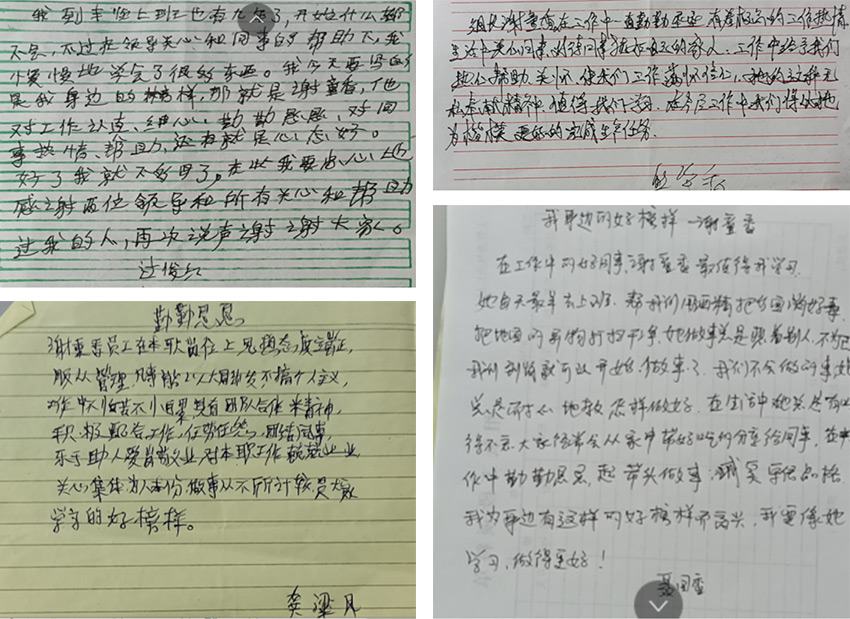 我到丰临上班也有九年了,开始什么都
不会,不过在领导关心和同事的帮助下,我
慢慢地学会了很多东西。我今天要写的
是我身边的榜样,那就是谢董香,他
对工作认真、细心、勤勤恳恳,对同
事热情、帮助,还有就是心态好。
好了我就不多写了。在此我要忠心地
感谢两位领导和所有关心和帮助
过我的人,再次说声谢谢大家。
过俊红
组长谢董香,在工作中一直勤勤恳恳,有着极高的工作热情
生活中关心同事,对待同事就像自己的家人。工作中给予我们
热心帮助、关怀,使我们工作满怀信心,她的这种无
私奉献精神,值得我们学习。在今后工作中我们将以她
为楷模,更好的完成生产任务。
勤勤恳恳
谢董香员工在本职岗位上思想态度端正,
服从管理,凡事能以大局为重不搞个人主义,
工作中不怕苦不怕累,具有团队合作精神,
积极配合工作,任劳任怨,团结同事,
乐于助人爱岗敬业,对本职工作兢兢业业,
关心集体为人本份做事从不斤斤计较是大家
学习的好榜样。
龚梁月
我身边的好榜样—谢董香
在工作中的好同事,谢董香最值得我学习
她每天最早去上班,帮我们用酒精把台面消好毒,
把地面的弄物打扫干净,她做事总是照着别人,不为己
我们到了就可以开始做事了。我们不会做的事,她
总是耐心地教怎样做好。在生活中她总是有心
待同事,大家经常会从家中带好吃的分享给同事,在工
作中勤勤恳恳,起带头做事,诚实守信的品格
我为身边有这样的好榜样而高兴,我要像她
学习,做得更好!
聂国香